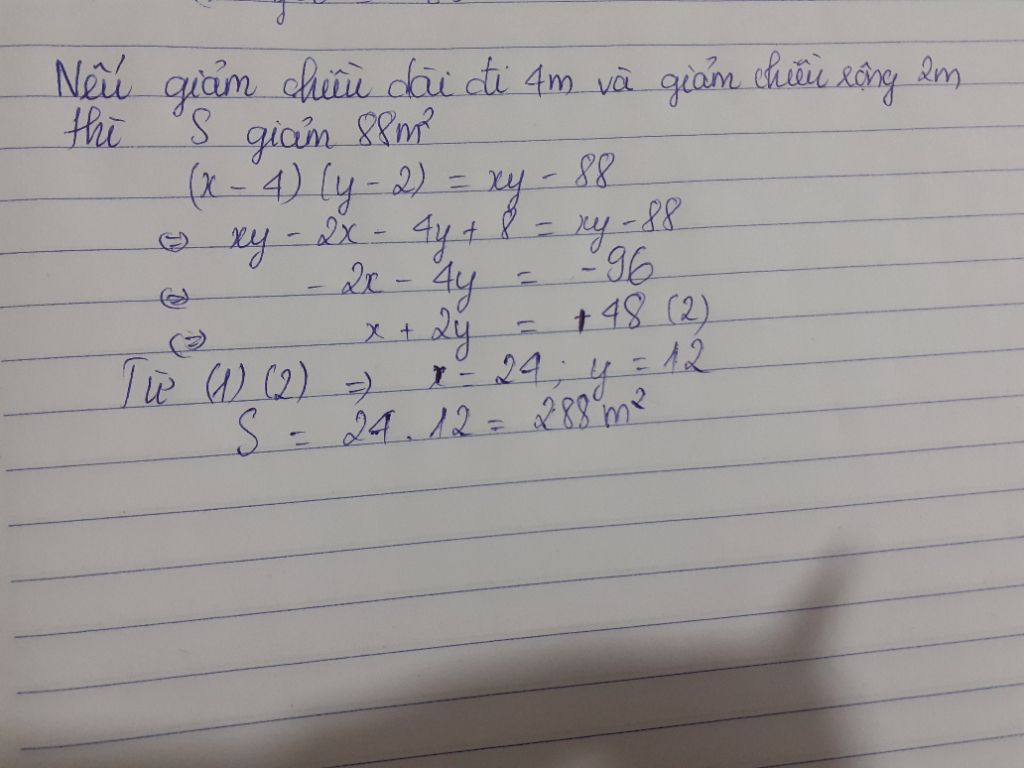 Nếu giảm chiều dài đi 4m và giảm chiều rộng 2m
thì S giảm 88m²
(x - 4) (y - 2) = xy - 88
⇔ xy - 2x - 4y + 8 = xy - 88
⇔ - 2x - 4y = - 96
⇔ x + 2y = +48 (2)
Từ (1) (2) ⇒ x = 24; y = 12
S = 24 . 12 = 288 m²